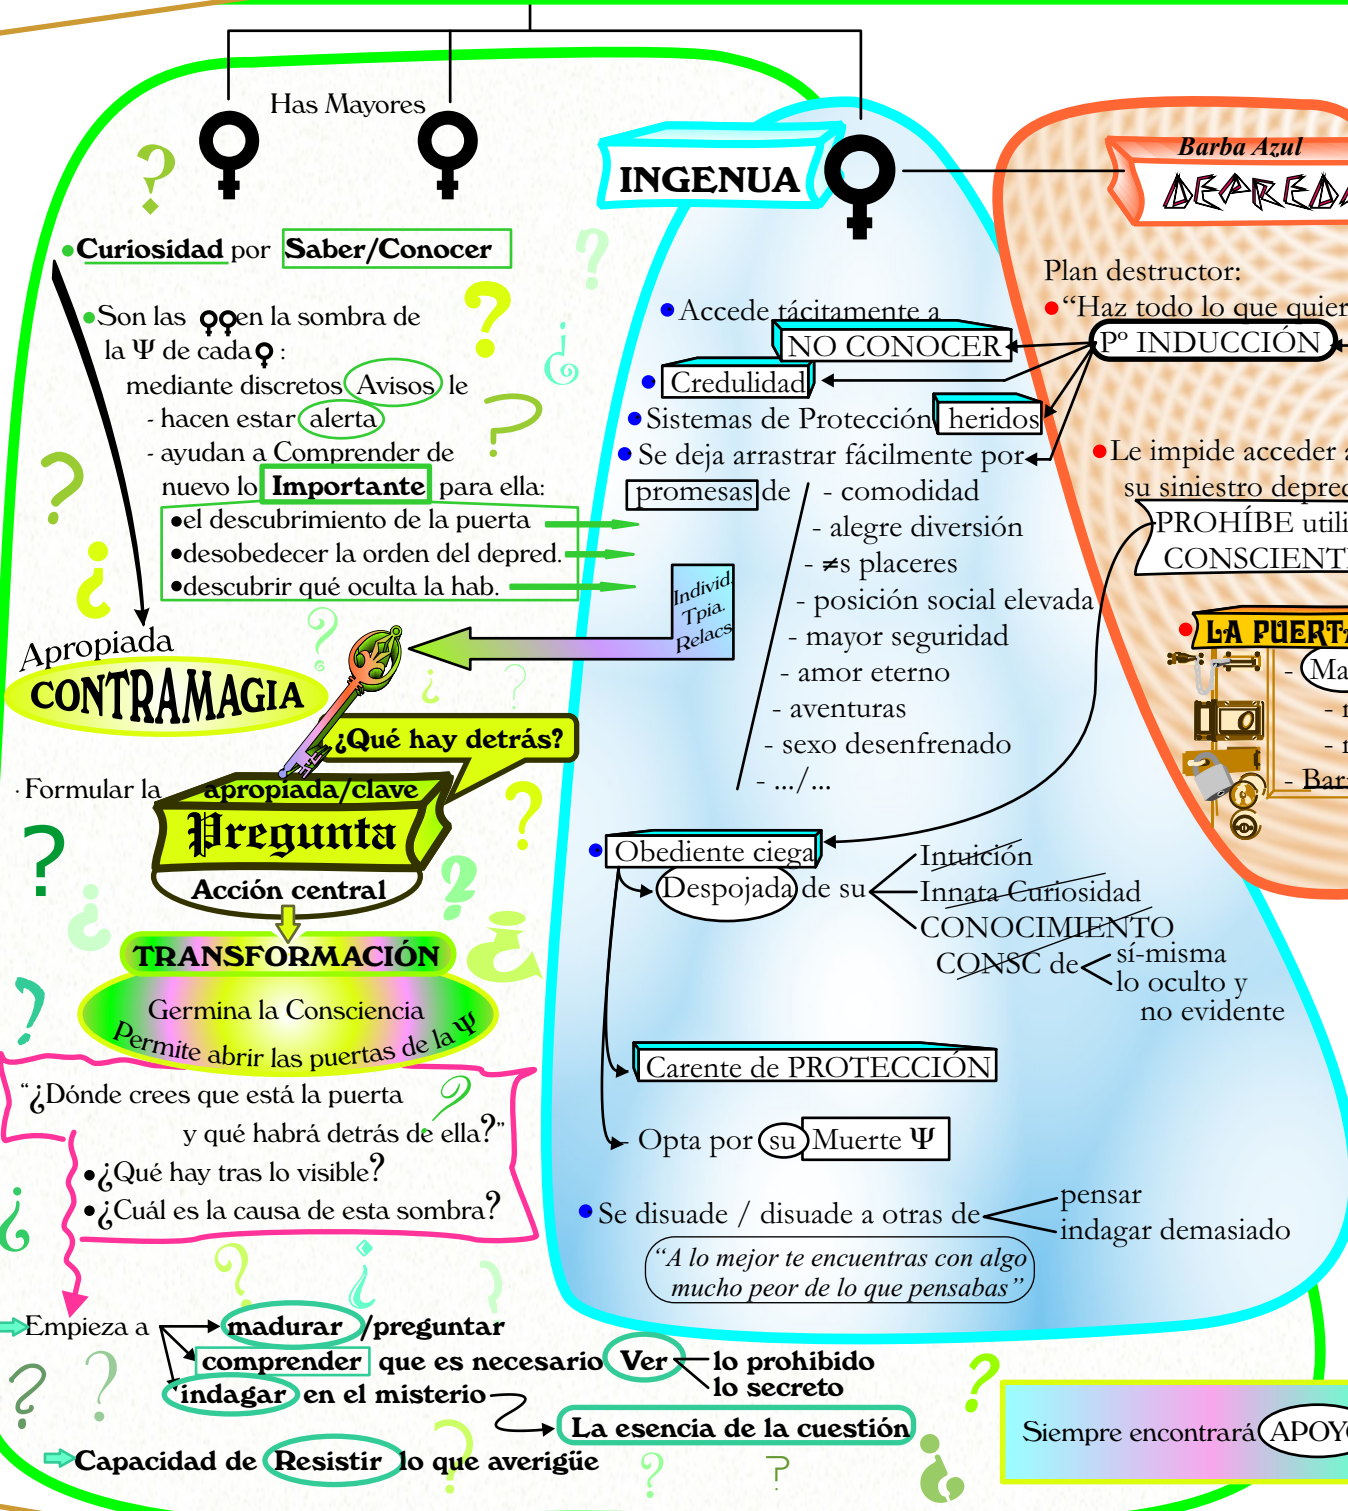 Has Mayores
• Curiosidad por Saber/Conocer
• Son las ♀♀ en la sombra de
la Ψ de cada ♀ :
mediante discretos Avisos le
- hacen estar alerta
- ayudan a Comprender de
nuevo lo Importante para ella:
• el descubrimiento de la puerta
• desobedecer la orden del depred.
• descubrir qué oculta la hab.
Individ.
Tpia.
Relacs
Apropiada
CONTRAMAGIA
¿Qué hay detrás?
· Formular la apropiada/clave
Pregunta
Acción central
TRANSFORMACIÓN
Germina la Consciencia
Permite abrir las puertas de la Ψ
“¿Dónde crees que está la puerta
y qué habrá detrás de ella?”
• ¿Qué hay tras lo visible?
• ¿Cuál es la causa de esta sombra?
Empieza a madurar /preguntar
comprender que es necesario Ver lo prohibido
lo secreto
indagar en el misterio
La esencia de la cuestión
Capacidad de Resistir lo que averigüe
INGENUA
• Accede tácitamente a
NO CONOCER
• Credulidad
• Sistemas de Protección heridos
• Se deja arrastrar fácilmente por
promesas de - comodidad
- alegre diversión
- ≠s placeres
- posición social elevada
- mayor seguridad
- amor eterno
- aventuras
- sexo desenfrenado
- .../...
• Obediente ciega
Despojada de su Intuición
Innata Curiosidad
CONOCIMIENTO
CONSC de sí-misma
lo oculto y
no evidente
Carente de PROTECCIÓN
- Opta por su Muerte Ψ
• Se disuade / disuade a otras de pensar
indagar demasiado
“A lo mejor te encuentras con algo
mucho peor de lo que pensabas”
Barba Azul
DEPREDA
Plan destructor:
• “Haz todo lo que quier
Pº INDUCCIÓN
• Le impide acceder a
su siniestro depred
PROHÍBE utili
CONSCIENT
• LA PUERTA
- Ma
- Barr
Siempre encontrará APOYO